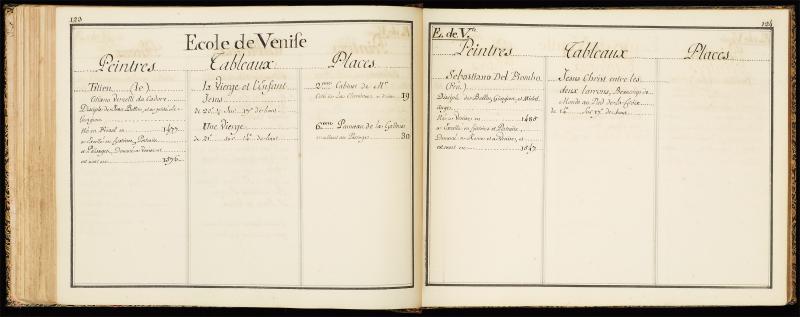 123
Ecole de Venise
Peintres
Tableaux
Places
Titien (le)
Titiano Vercelli da Cadore
Disciple de Jean Bellin, et
Giorgion
Né en Frioul en 1477
a Excellé en histoires, Portraits
et Paysages, Demeuré a Venise et
est mort en 1576
la Vierge et l'Enfant
Jesus
Une Vierge
2eme Cabinet de Mr
19
6eme Panneau de la Gallerie
30
124
E. de V.se
Peintres
Tableaux
Places
Sebastiano Del Piombo
(Fra)
Disciple des Bellin, Giorgion, et Michel
Ange
Né a Venise en 1485
a Excellé en histoires et Portraits,
Demeuré a Rome et a Venise, et
est mort en 1547
Jesus Christ entre les
deux larrons, Beaucoup de
Monde au Pied de la Croix